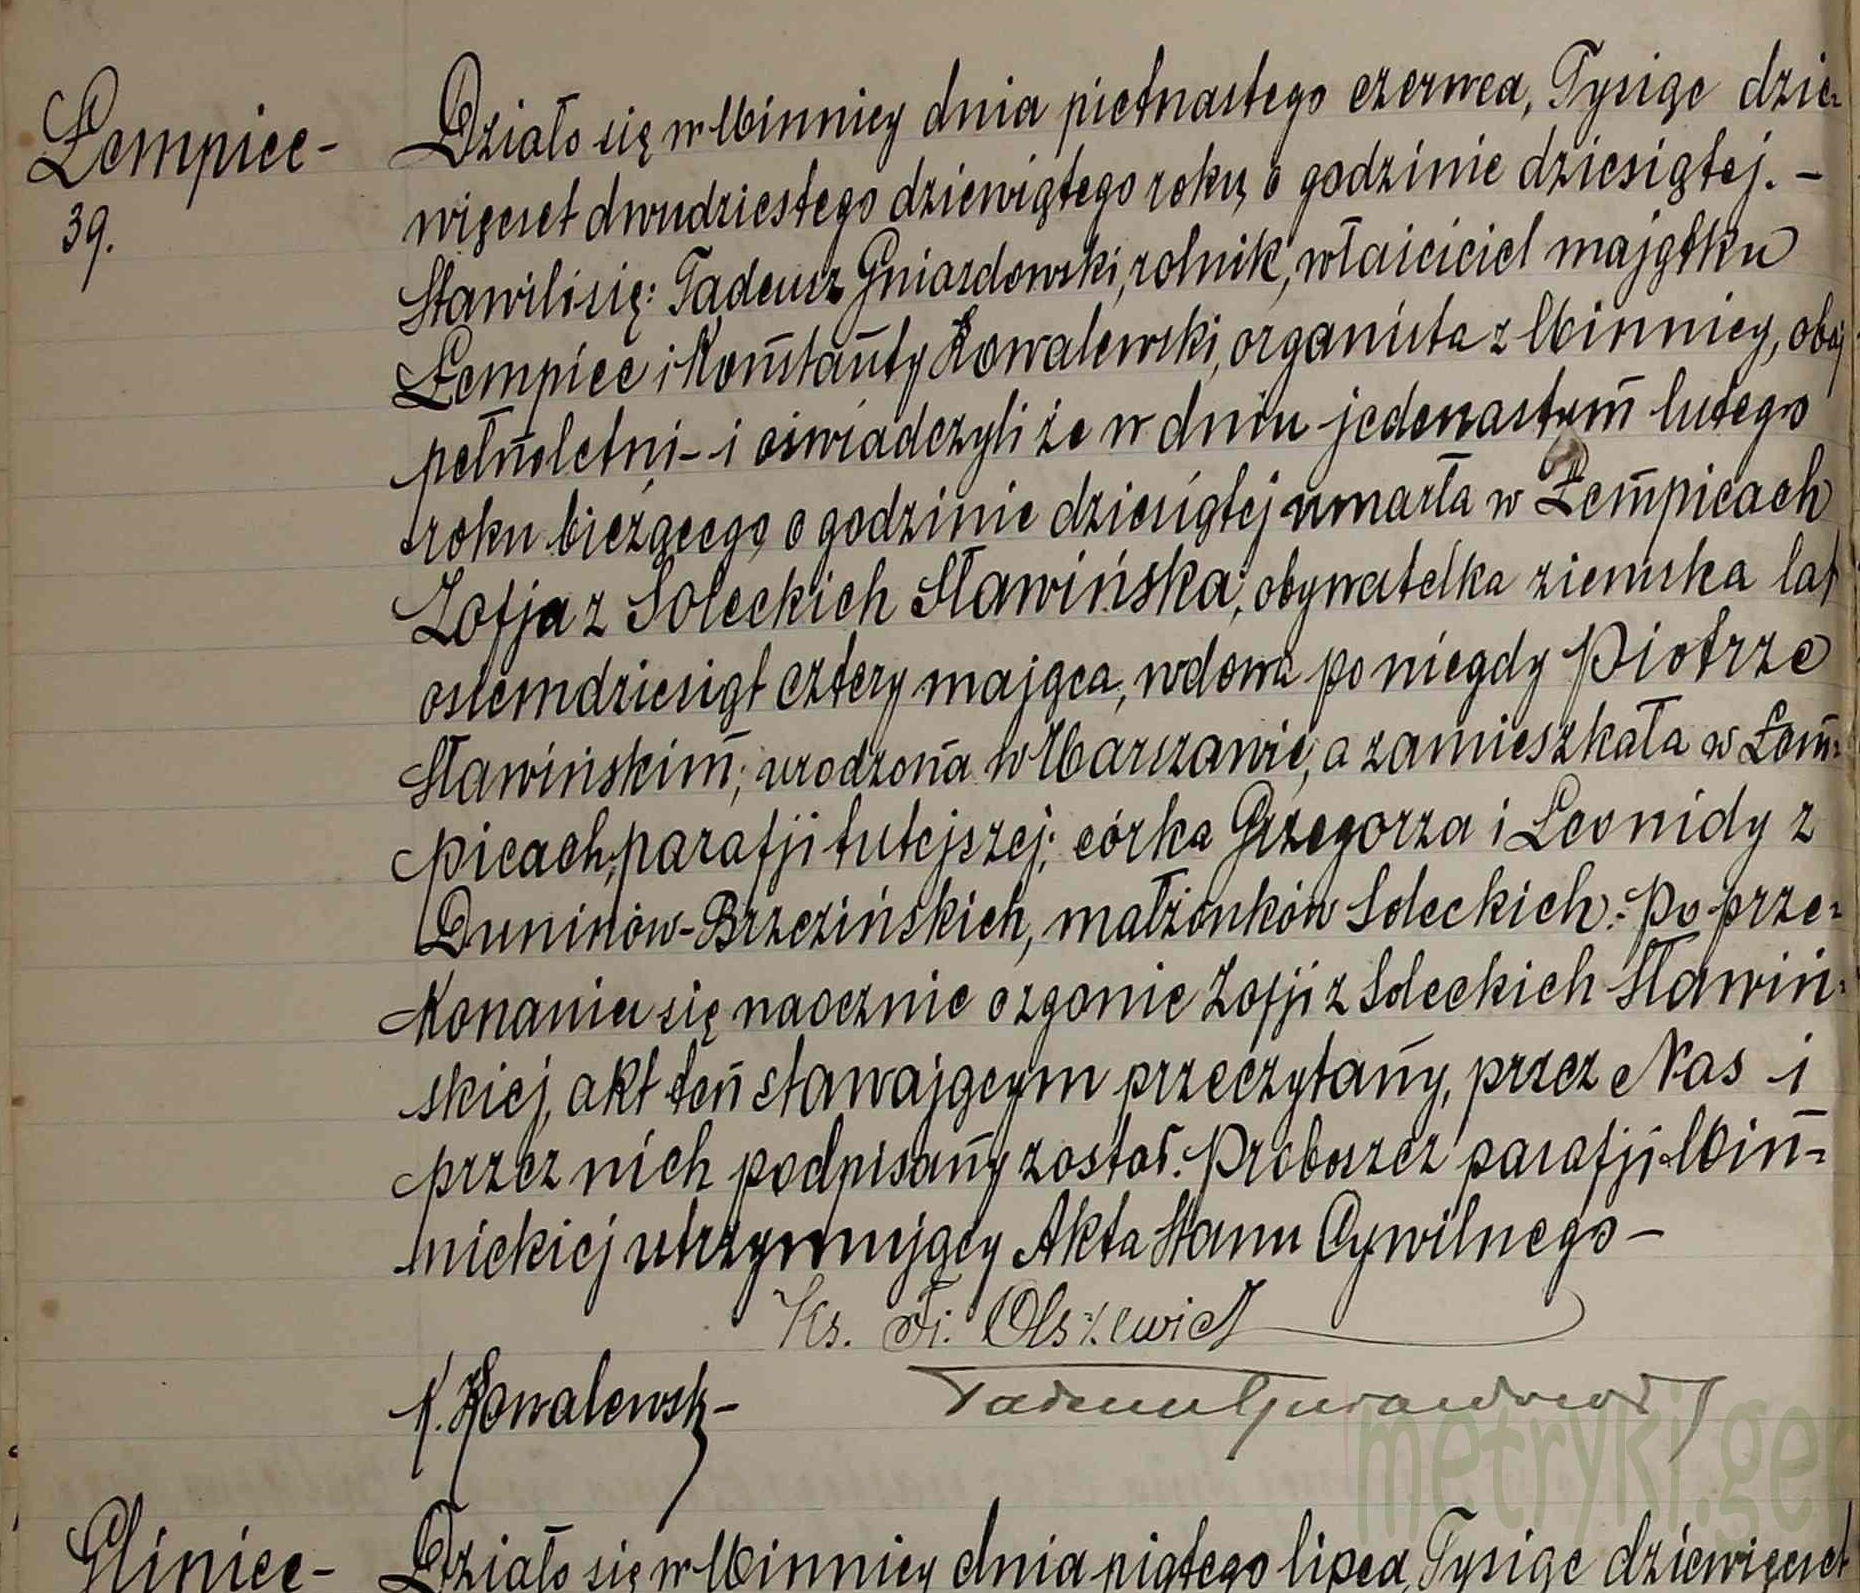 Łempice-
39.
Działo się w Winnicy dnia piętnastego czerwca, Tysiąc dzie-
więćset dwudziestego dziewiątego roku, o godzinie dziesiątej. -
Stawili się: Tadeusz Gniazdowski, rolnik, właściciel majątku
Łempice i Konstanty Kowalewski, organista z Winnicy, obaj
pełnoletni- i oświadczyli że w dniu jedenastym lutego
roku bieżącego o godzinie dziesiątej umarła w Łempicach
Zofja z Soleckich Sławińska, obywatelka ziemska lat
osiemdziesiąt cztery mająca, wdowa po niegdy Piotrze
Sławińskim; urodzona w Warszawie, a zamieszkała w Łem-
picach, parafji tutejszej; córka Grzegorza i Leonidy z
Duninów-Brzezińskich, małżonków Soleckich.- Po prze-
konaniu się naocznie o zgonie Zofji z Soleckich Sławiń-
skiej, akt ten stawającym przeczytany, przez Nas i
przez nich podpisany został. Proboszcz parafji Win-
nickiej utrzymujący Akta Stanu Cywilnego-
Ks. Fr. Olszewicz
K. Kowalewski- Tadeusz Gniazdowski
metryki.gen
Glinice-
Działo się w Winnicy dnia piątego lipca, Tysiąc dziewięćset